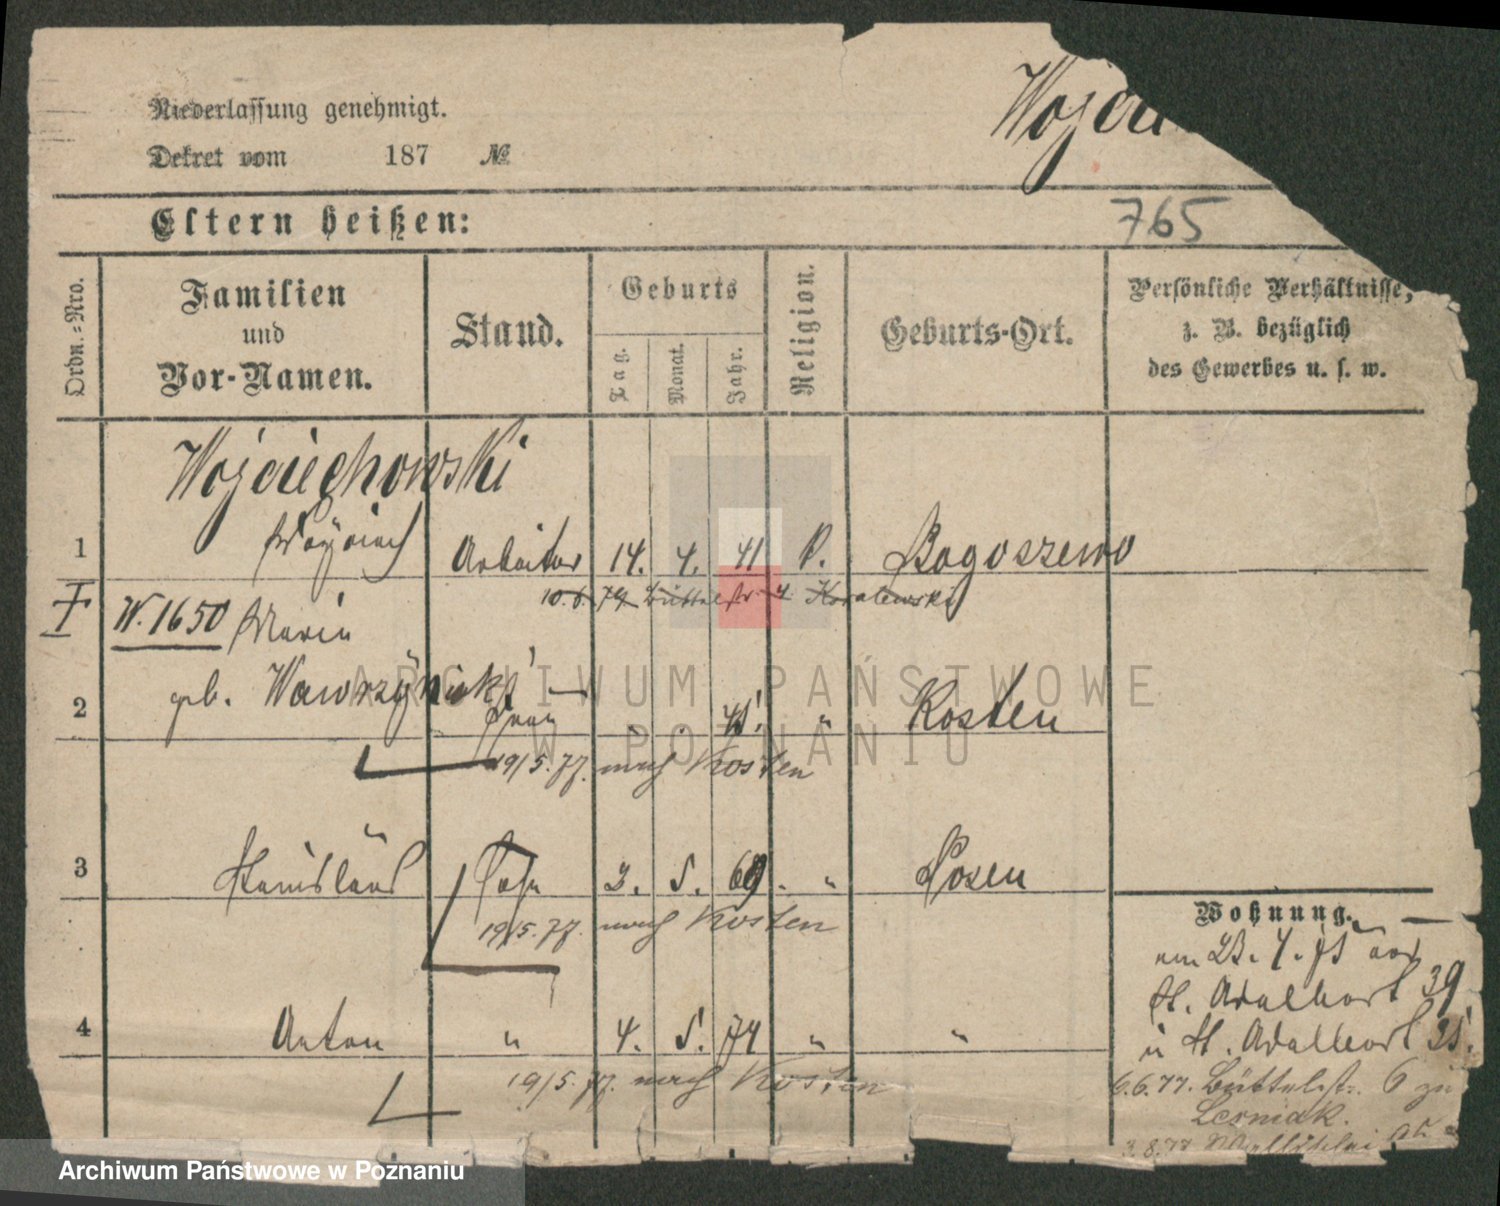 Niederlassung genehmigt.
Dekret vom 187 №
Wojciech
765
Eltern heißen:
Ordn.-Nro.
Familien
und
Vor-Namen.
Stand.
Geburts
Tag.
Monat.
Jahr.
Religion.
Geburts-Ort.
Persönliche Verhältnisse,
z. B. bezüglich
des Gewerbes u. s. w.
Wojciechowski
1 Woyciech Arbeiter 14. 4. 41 K. Bogoszewo
10.6.74 Büttelstr. 4. Koralewski
W. 1650 Maria
2 geb. Wawrzyniak Frau 45. " Kosten
19/5.77. nach Kosten
3 Stanislaus Sohn 3. 5. 69. " Posen
19/5.77. nach Kosten
4 Anton " 4. 5. 74 " "
19/5.77. nach Kosten
Wohnung.
am 23. 4. 75 von
St. Adalbert 39
n St. Adalbert 35.
6.6.77. Büttelstr. 6 zu
Lesniak.
3.8.77
ARCHIWUM PAŃSTWOWE
W POZNANIU
Archiwum Państwowe w Poznaniu